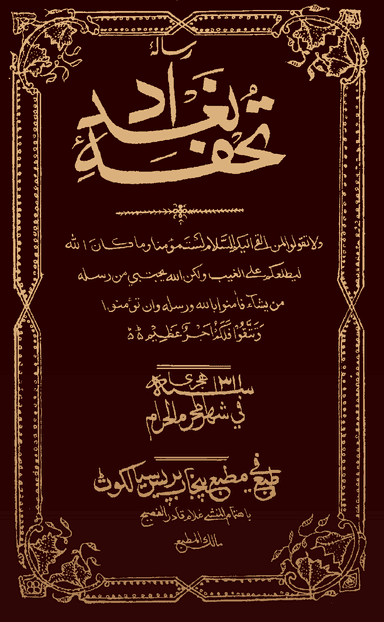 رسالہ
تحفۂ بغداد
ولا تقولوا لمن القى اليكم السلام لست مؤمنا وما كان الله
ليطلعكم على الغيب ولكن الله يجتبي من رسله
من يشاء فآمنوا بالله ورسله وان تؤمنوا
وتتقوا فلكم اجر عظيم
سنة ١٣١١ هجری
في شهر المحرم الحرام
طبع في مطبع پنجاب پریس سیالکوٹ
باهتمام المنشي غلام قادر الفصيح
مالك المطبع